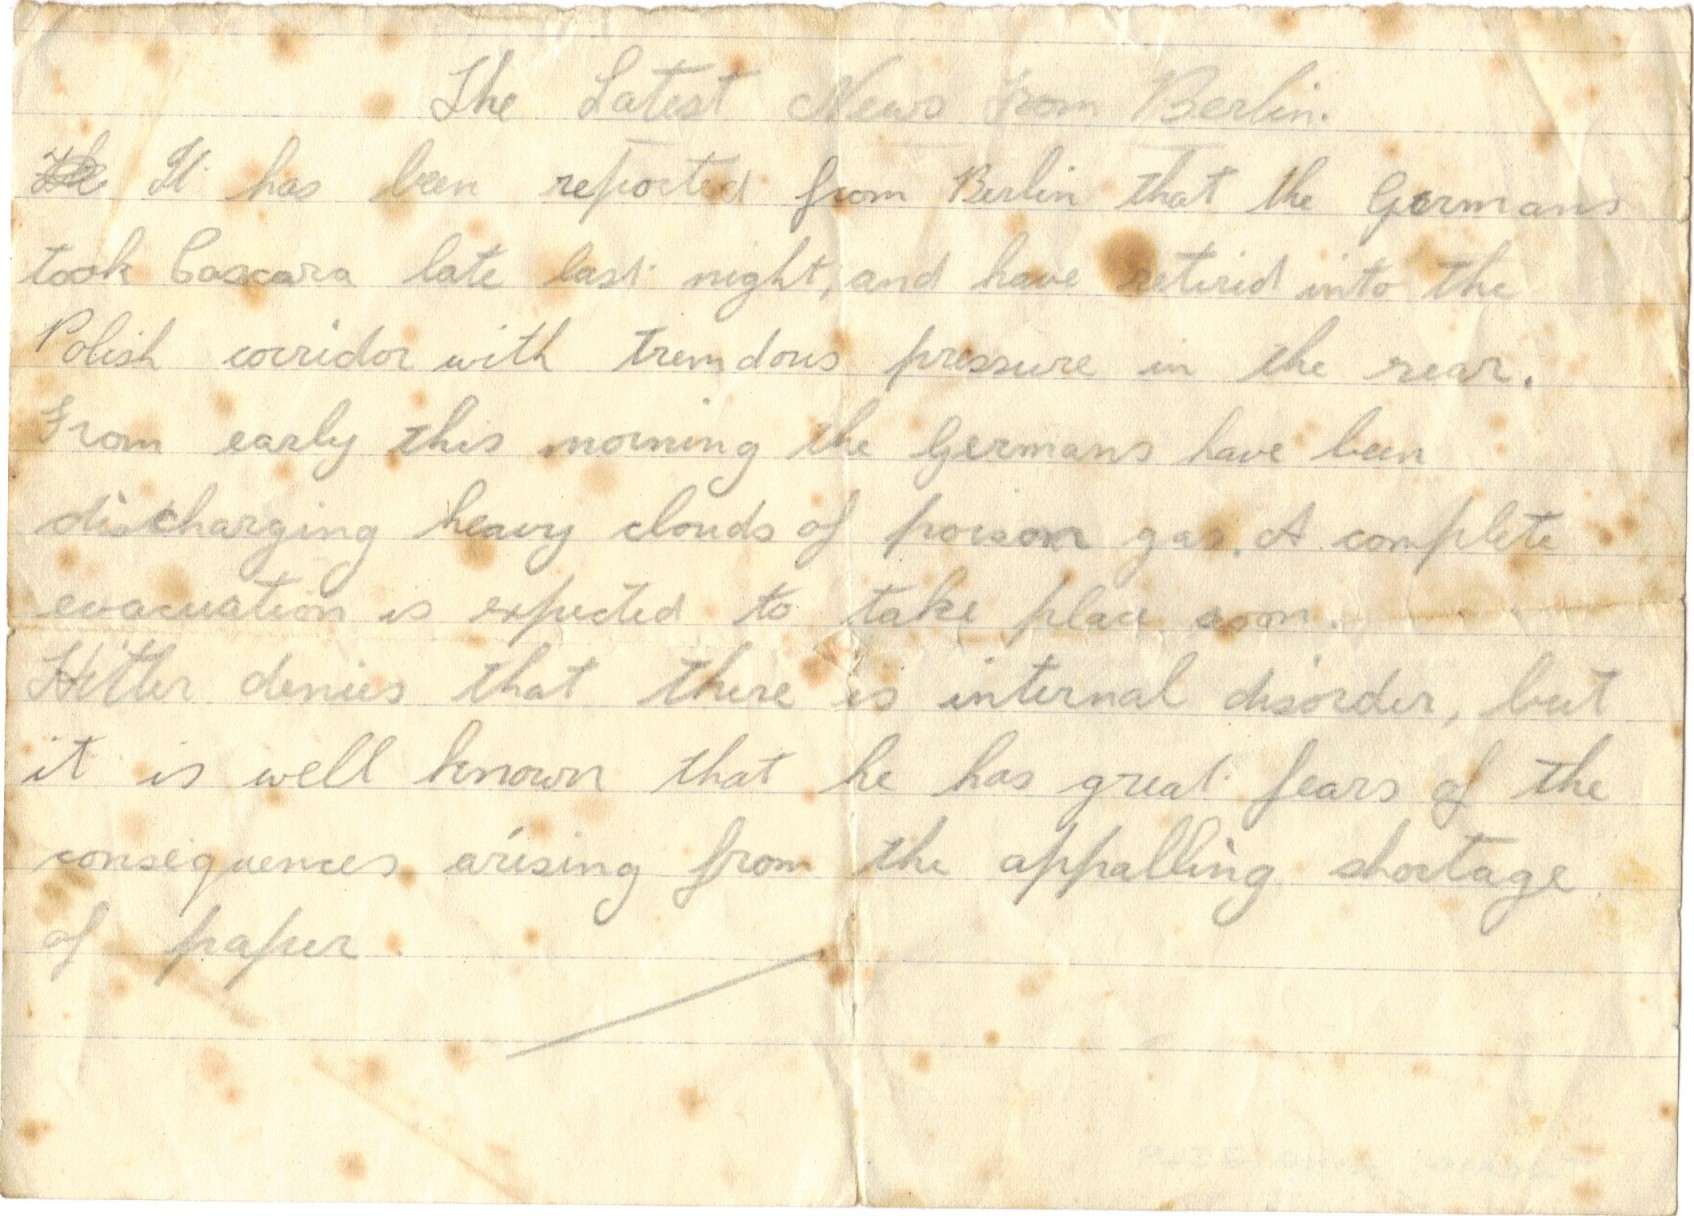 The Latest News From Berlin.
It has been reported from Berlin that the Germans
took Cascara late last night, and have retired into the
Polish corridor with tremdous pressure in the rear.
From early this morning the Germans have been
discharging heavy clouds of poison gas. A complete
evacuation is expected to take place soon.
Hitler denies that there is internal disorder, but
it is well known that he has great fears of the
consequences arising from the appalling shortage
of paper.